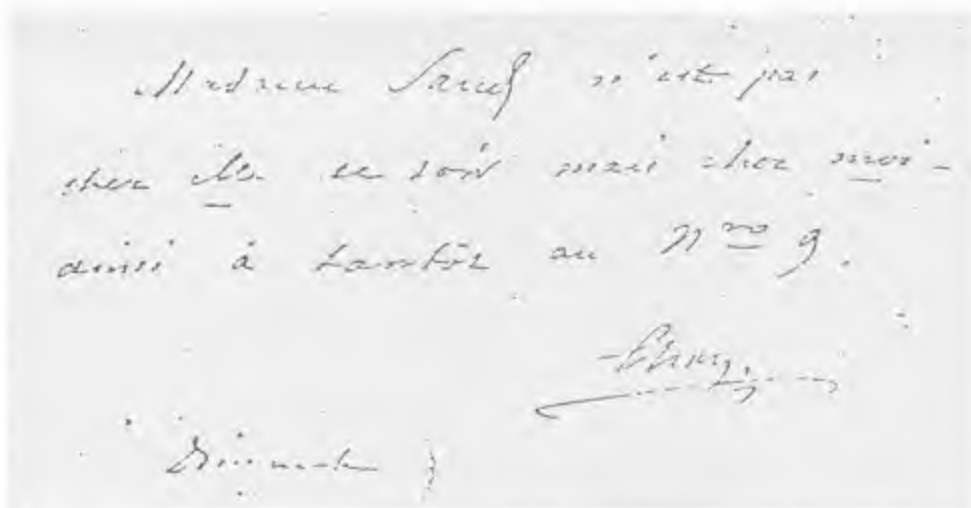 Madame Sand n'est pas
chez elle ce soir mais chez moi -
ainsi à tantôt au Nro 9.
Dimanche